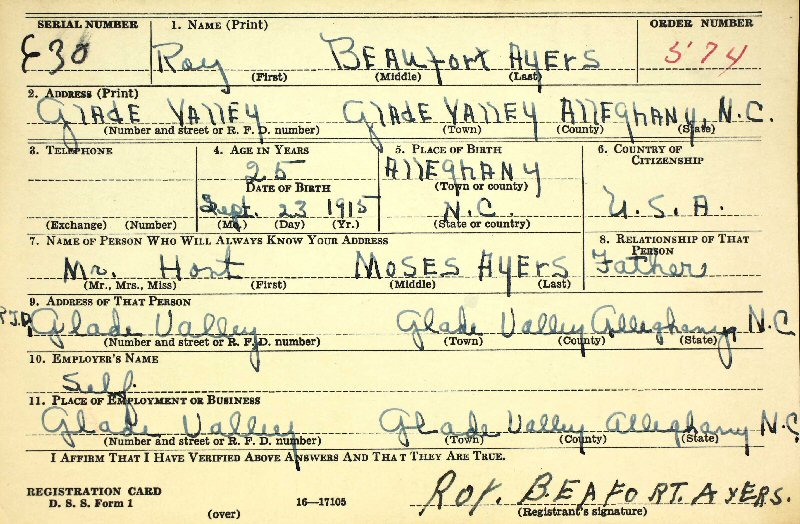 SERIAL NUMBER 1. NAME (Print) ORDER NUMBER
E30 Roy BEAufort AyErs 574
(First) (Middle) (Last)
2. ADDRESS (Print)
GlADE VAllEy GlADE VAllEy AllEghANy, N.C.
(Number and street or R. F. D. number) (Town) (County) (State)
3. TELEPHONE 4. AGE IN YEARS 5. PLACE OF BIRTH 6. COUNTRY OF CITIZENSHIP
25 AllEghANy
DATE OF BIRTH (Town or county)
Sept. 23 1915 N.C. U.S.A.
(Exchange) (Number) (Mo.) (Day) (Yr.) (State or country)
7. NAME OF PERSON WHO WILL ALWAYS KNOW YOUR ADDRESS 8. RELATIONSHIP OF THAT PERSON
Mr. Hont MOSES AyErs Father
(Mr., Mrs., Miss) (First) (Middle) (Last)
9. ADDRESS OF THAT PERSON
Glade Valley Glade Valley Alleghany N.C
(Number and street or R. F. D. number) (Town) (County) (State)
10. EMPLOYER'S NAME
Self.
11. PLACE OF EMPLOYMENT OR BUSINESS
Glade Valley Glade Valley Alleghany N.C
(Number and street or R. F. D. number) (Town) (County) (State)
I AFFIRM THAT I HAVE VERIFIED ABOVE ANSWERS AND THAT THEY ARE TRUE.
REGISTRATION CARD
D. S. S. Form 1 16—17105 Roy. BEAFORT. AYERS.
(over) (Registrant's signature)